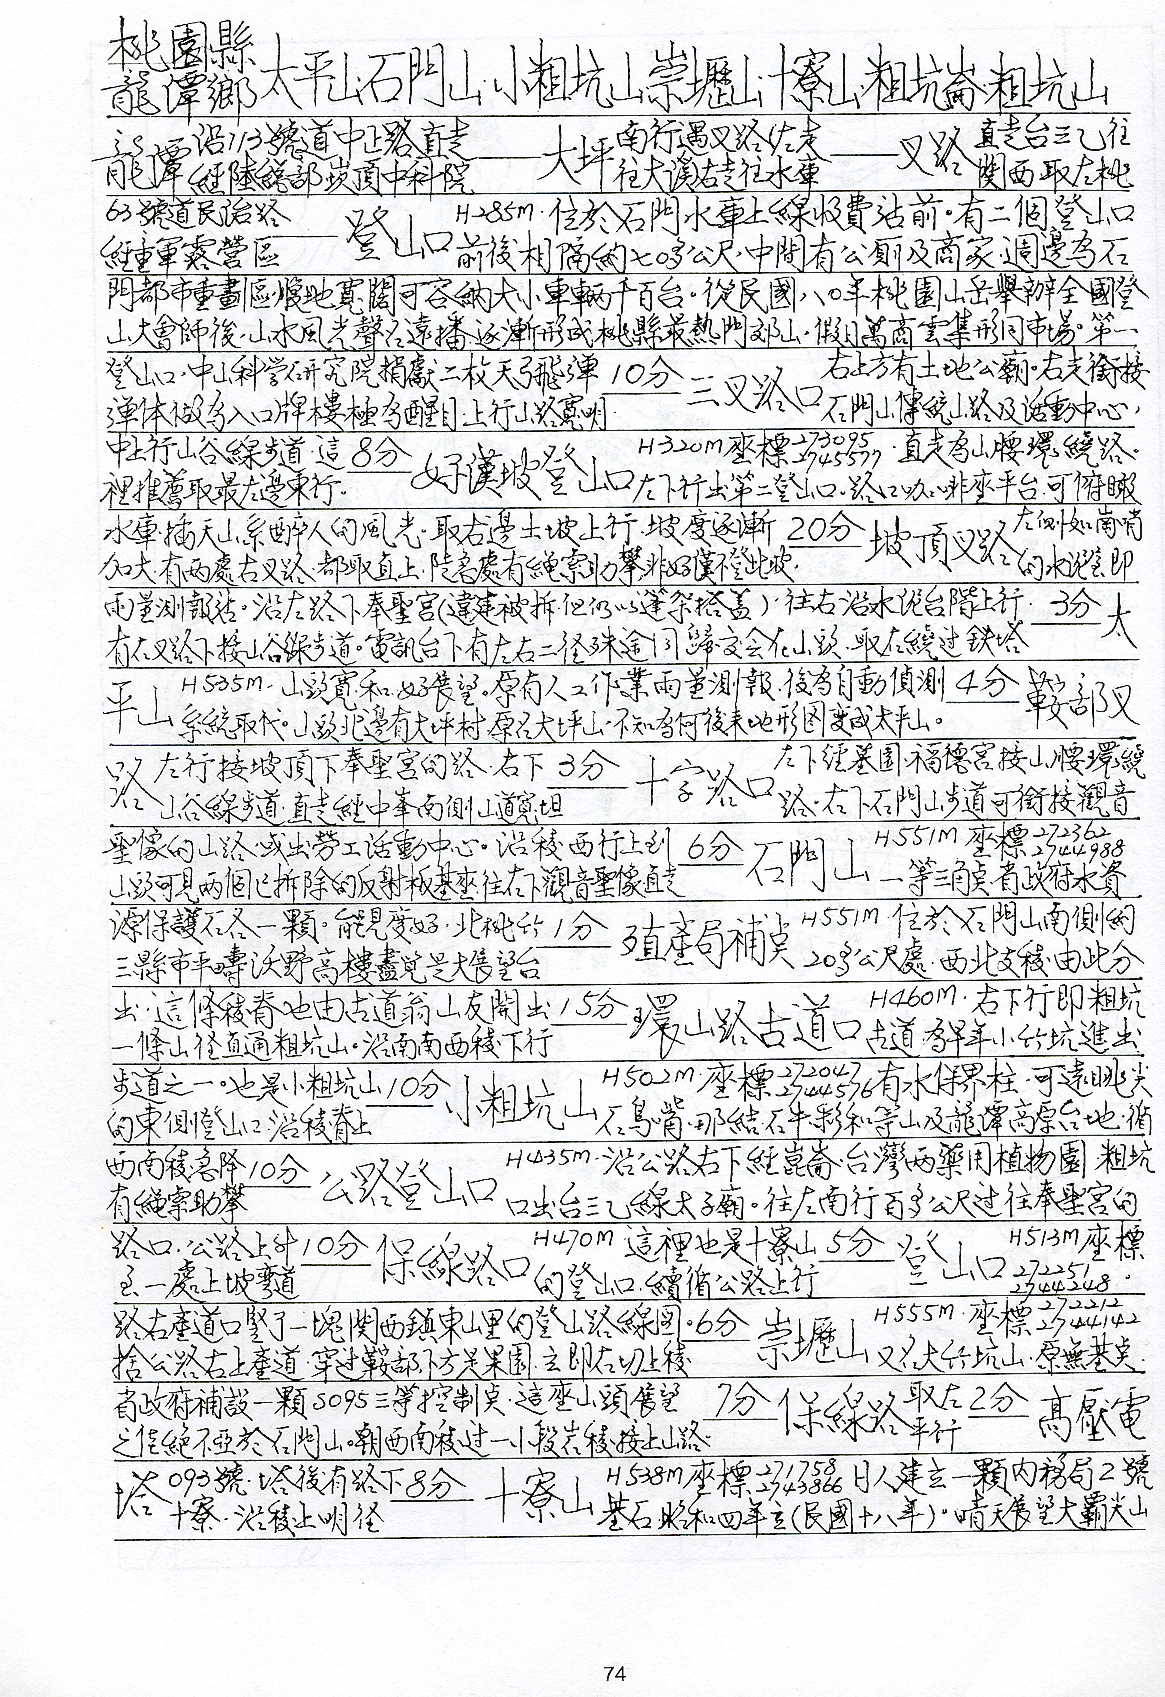 桃園縣
龍潭鄉 太平山.石門山.小粗坑山.崇壢山.十寮山.粗坑崙.粗坑山
龍潭 沿113號道中正路直走 經陸總部崁頂中科院 —— 大坪 南行遇叉路左走往大溪右走往水庫 —— 叉路 直走台三乙往關西取左桃
63號道民治路經童軍露營區 —— 登山口 H285m.位於石門水庫上線收費站前。有二個登山口
前後相隔約七0多公尺.中間有公廁及商家.週邊為石
門都市重劃區.腹地寬闊可容納大小車輛千百台。從民國八0年桃園山岳舉辦全國登
山大會師後.山水風光聲名遠播.逐漸形成桃縣最熱門郊山.假日萬商雲集形同市場。第一
登山口.中山科學研究院捐獻二枚天弓飛彈 10分 三叉路口 右上方有土地公廟。右走銜接
彈体做為入口牌樓極為醒目.上行山路寬明 石門山傳統山路及活動中心,
中上行山谷線步道.這 8分 好漢坡登山口 H320m座標273095 2745577.直走為山腰環繞路。
裡推薦取最左邊東行. 左下行出第二登山口.路口咖啡座平台.可俯瞰
水庫插天山系醉人的風光.取右邊土坡上行.坡度逐漸 20分 坡頂叉路 左側如崗哨
加大.有兩處右叉路.都取直上.陡急處有繩索助攀非好漢不登此坡. 的水泥室即
雨量測報站。沿左路下奉聖宮(違建被拆.但仍以篷架搭蓋).往右沿水泥台階上行. 3分 太
有右叉路下接山谷線步道。電訊台下有左右二徑殊途同歸交会在山頭.取左繞過鉄塔
平山 H535m.山頭寬和.好展望。原有人工作業雨量測報.後為自動偵測 4分 鞍部叉
系統取代。山頭北邊有大坪村.原名大坪山.不知為何後來地形图變成太平山。
路 左行接坡頂下奉聖宮的路.右下 3分 十字路口 左下經墓園.福德宮接山腰環繞
山谷線步道.直走經中峯南側山道寬坦 路.右下石門山步道可銜接觀音
聖像的山路.或出勞工活動中心。沿稜西行上到 6分 石門山 H551m 座標272362 2744988
山頭可見兩個已拆除的反射板基座.往右下觀音聖像.直走 一等三角點.省政府水資
源保護石各一顆。能見度好.北桃竹 1分 殖產局補點 H551m.位於石門山南側約
三縣市平疇沃野高樓盡覽是大展望台 20多公尺處.西北支稜.由此分
出.這條稜脊也由古道翁山友開出 15分 環山路古道口 H460m.右下行即粗坑
一條山徑直通粗坑山。沿南南西稜下行 古道.為早年小竹坑進出
步道之一。也是小粗坑山 10分 小粗坑山 H502m.座標272047 2744576有水保界柱.可遠眺尖
的東側登山口.沿稜脊上 石鳥嘴.那結.石牛.彩和等山及龍潭高原台地.循
西南稜急降 10分 公路登山口 H435m.沿公路右下經崑崙.台灣两藥用植物園.粗坑
有繩索助攀 口出台三乙線太子廟。往左南行百多公尺过往奉聖宮的
路口.公路上升 10分 保線路口 H470m 這裡也是十寮山 5分 登山口 H513m座標
至一處上坡彎道 的登山口.續循公路上行 272251 2744248.
路右產道口豎了一塊關西鎮東山里的登山路線图. 6分 崇壢山 H555m.座標272212 2744142
捨公路右上產道.穿過鞍部下方是果園.立即右切上稜 又名大竹坑山.原無基點.
省政府補設一顆S095三等控制點.這座山頭展望 7分 保線路 取左平行 2分 高壓電
之佳絕不亞於石門山。朝西南稜过一小段岩稜.接上山路.
塔 093號.塔後有路下 8分 十寮山 H538m座標271758 2743866 日人建立一顆內務局2號
十寮.沿稜上明徑 基石昭和四年立(民國十八年)。晴天展望大霸尖山
74